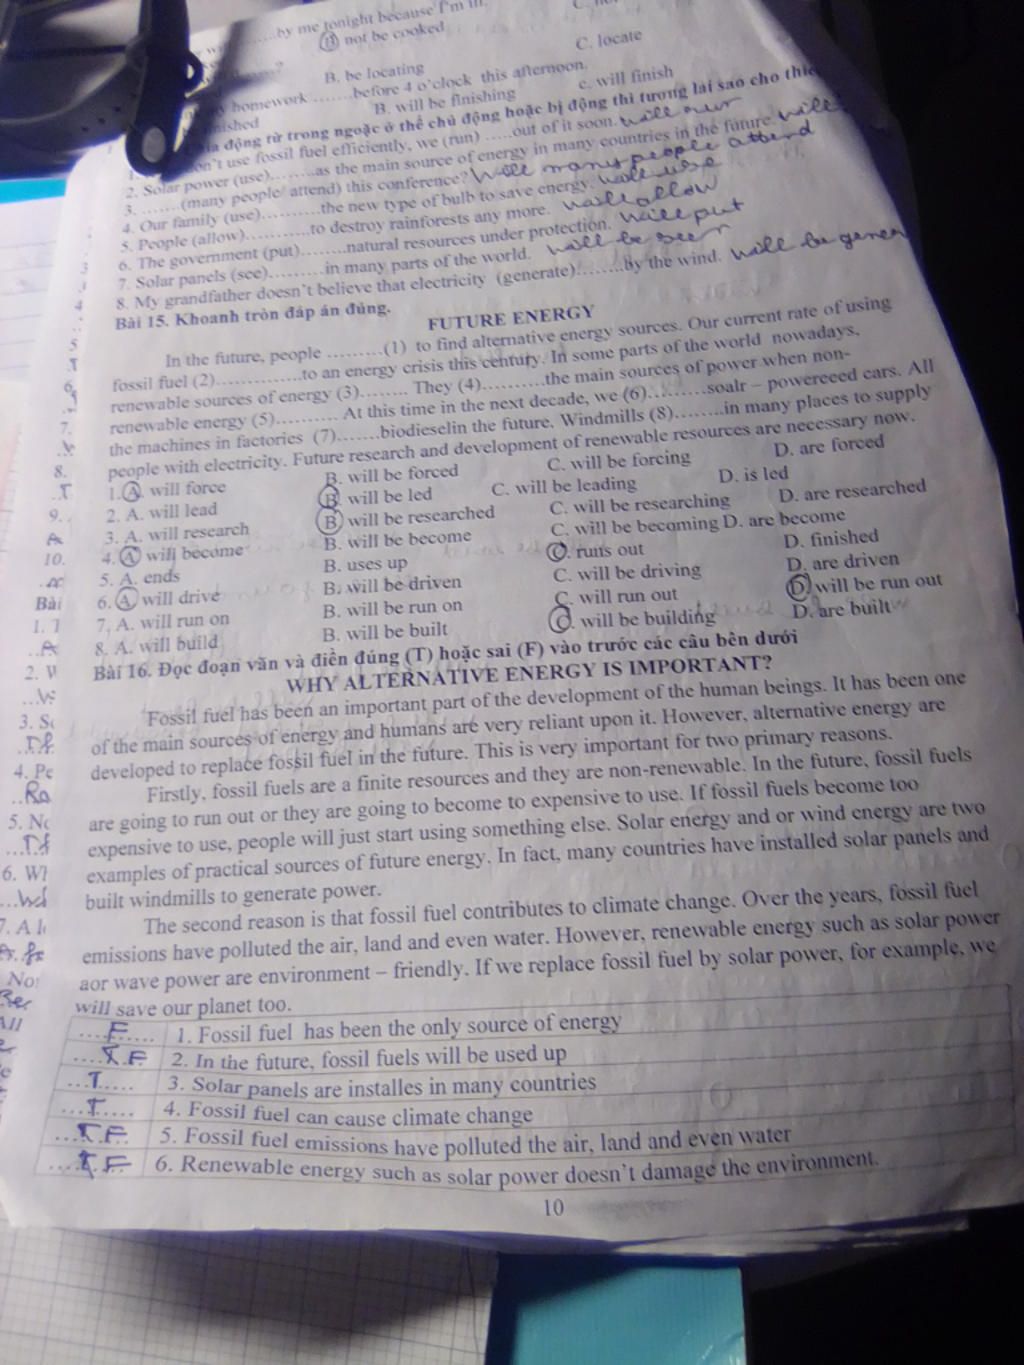 by me tonight because I'm ill.
B not be cooked
B. be locating
C. locate
homework ....... before 4 o'clock this afternoon.
B. will be finishing
c. will finish
động từ trong ngoặc ở thể chủ động hoặc bị động thì tương lai sao cho
use fossil fuel efficiently, we (run) .....out of it soon. will run
2. Solar power (use)........as the main source of energy in many countries in the future. will
3. .......(many people/ attend) this conference? Will many people attend
4. Our family (use)..........the new type of bulb to save energy. will use
5. People (allow)...........to destroy rainforests any more. will allow
6. The government (put)........natural resources under protection. will put
7. Solar panels (see).........in many parts of the world. will be seen
8. My grandfather doesn't believe that electricity (generate)........by the wind. will be gener
Bài 15. Khoanh tròn đáp án đúng.
FUTURE ENERGY
In the future, people .........(1) to find alternative energy sources. Our current rate of using
fossil fuel (2)..............to an energy crisis this century. In some parts of the world nowadays,
renewable sources of energy (3)........ They (4)..........the main sources of power when non-
renewable energy (5).......... At this time in the next decade, we (6)..........soalr – powereeed cars. All
the machines in factories (7).......biodieselin the future. Windmills (8)........in many places to supply
people with electricity. Future research and development of renewable resources are necessary now.
1. A. will force B. will be forced C. will be forcing D. are forced
2. A. will lead B. will be led C. will be leading D. is led
3. A. will research B. will be researched C. will be researching D. are researched
4. A. will become B. will be become C. will be becoming D. are become
5. A. ends B. uses up C. runs out D. finished
6. A. will drive B. will be driven C. will be driving D. are driven
7. A. will run on B. will be run on C. will run out D. will be run out
8. A. will build B. will be built C. will be building D. are built
Bài 16. Đọc đoạn văn và điền đúng (T) hoặc sai (F) vào trước các câu bên dưới
WHY ALTERNATIVE ENERGY IS IMPORTANT?
Fossil fuel has been an important part of the development of the human beings. It has been one
of the main sources of energy and humans are very reliant upon it. However, alternative energy are
developed to replace fossil fuel in the future. This is very important for two primary reasons.
Firstly, fossil fuels are a finite resources and they are non-renewable. In the future, fossil fuels
are going to run out or they are going to become to expensive to use. If fossil fuels become too
expensive to use, people will just start using something else. Solar energy and or wind energy are two
examples of practical sources of future energy. In fact, many countries have installed solar panels and
built windmills to generate power.
The second reason is that fossil fuel contributes to climate change. Over the years, fossil fuel
emissions have polluted the air, land and even water. However, renewable energy such as solar power
aor wave power are environment – friendly. If we replace fossil fuel by solar power, for example, we
will save our planet too.
....F..... 1. Fossil fuel has been the only source of energy
....F. 2. In the future, fossil fuels will be used up
...T..... 3. Solar panels are installes in many countries
...T..... 4. Fossil fuel can cause climate change
....F. 5. Fossil fuel emissions have polluted the air, land and even water
....F. 6. Renewable energy such as solar power doesn't damage the environment.
10